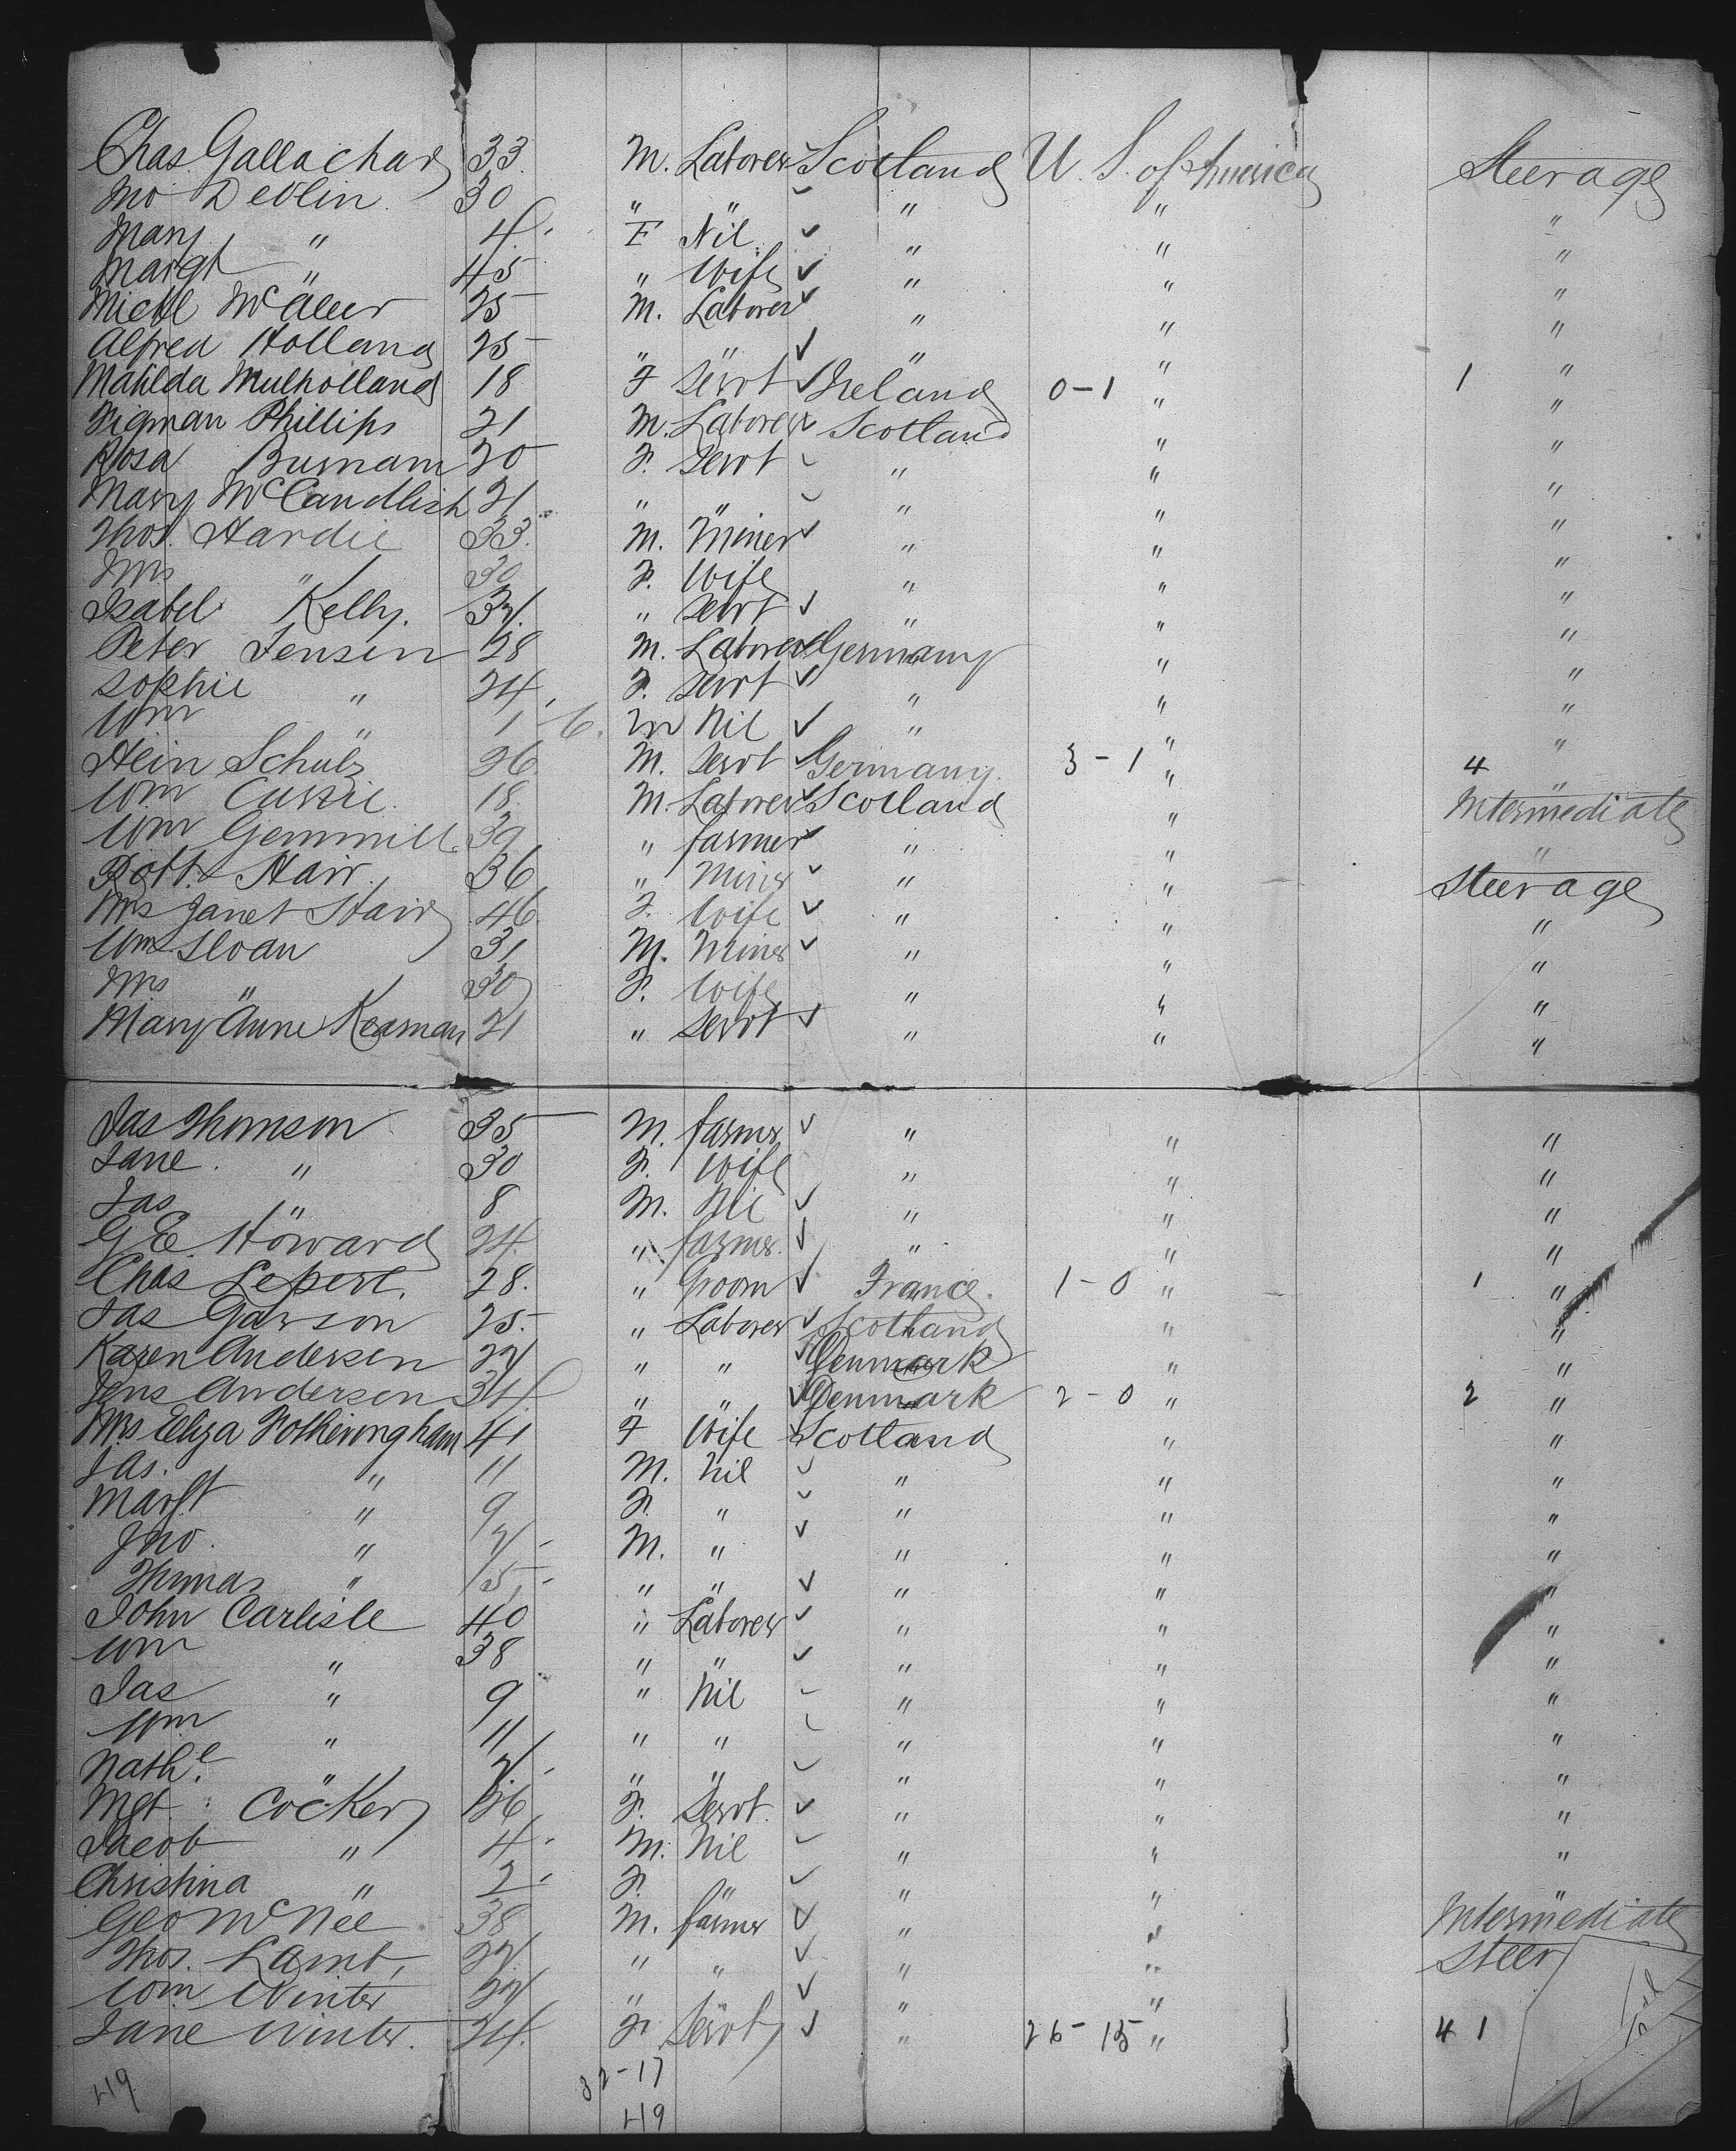 Chas. Gallachar 33. M. Laborer Scotland U. S. of America Steerage
Jno Devlin 30 " " " " "
Mary " 4. F Nil " " "
Margt " 45 " Wife " " "
Michl McAleer 25 M. Laborer " " "
Alfred Holland 25 " " " " "
Matilda Mulholland 18 F Servt Ireland 0-1 " 1 "
Phillips 21 M. Laborer Scotland " "
Rosa Burnam 20 F. Servt " " "
Mary McCandlish 21 " " " " "
Thos. Hardie 33. M. Miner " " "
Mrs " 30 F. Wife " " "
Isabel Kelly. " Servt " " "
Peter Jensen 28 M. Laborer Germany " "
Sophie " 24 F. Servt " " "
Wm " 1 6. M Nil " " "
Hein Schulz 26. M. Servt Germany. 3-1 " 4 "
Wm Currie. 18. M. Laborer Scotland " Intermediate
Wm Gemmill. 39 " farmer " " "
Robt. Hair. 36 " Miner " " Steerage
Mrs Janet Hair 46. F. Wife " " "
Wm Sloan 31 M. Miner " " "
Mrs " 30 F. Wife " " "
Mary Anne Kearnan 21 " Servt " " "
Jas Thomson 35 M. farmer " " "
Jane. " 30 F. Wife " " "
Jas " 8 M. Nil " " "
G E. Howard 24. " farmer. " " "
Chas Lepert. 28. " Groom France. 1-0 " 1 "
Jas Gawson 25. " Laborer Scotland " "
Karen Andersen 22 " " Denmark " "
Jens Andersen 34 " " Denmark 2-0 " 2 "
Mrs Eliza Fotheringham 41 F Wife Scotland " "
Jas. " 11 M. Nil " " "
Margt " 9 F. " " " "
Jno. " 7 M. " " " "
Thomas " 5 " " " " "
John Carlisle 40 " Laborer " " "
Wm " 38 " " " " "
Jas " 9 " Nil " " "
Wm " 11 " " " " "
Nathl. " 7 " " " " "
Mgt. Cocker 36 F. Servt. " " "
Jacob " 4 M. Nil " " "
Christina " 2 F. " " " "
Geo McNee 38 M. farmer " " Intermediate
Thos. Lamb, 22 " " " " Steer
Wm Winter 22 " " " "
Jane Winter. 24. F. Servt " 26-15 " 41
49 32-17
49